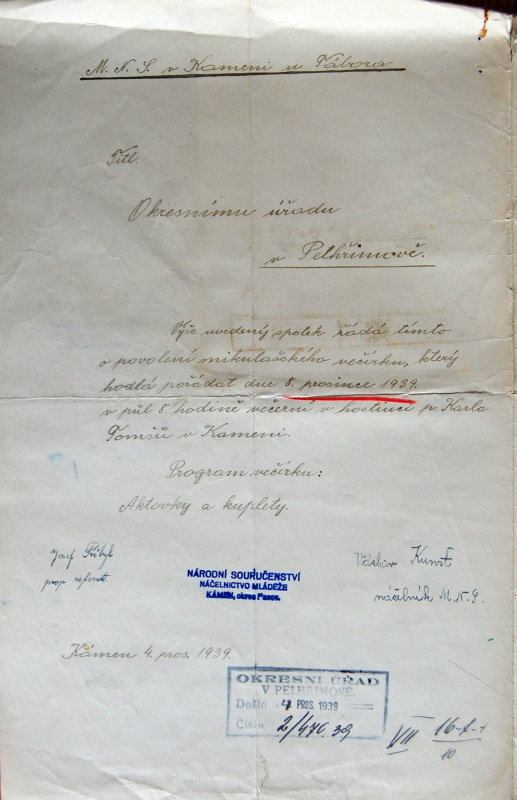 M. N. S. v Kameni u Tábora
Titl.
Okresnímu úřadu
v Pelhřimově.
Výše uvedený spolek řádá tímto
o povolení mikulašského večírku, který
hodlá pořádat dne 8. prosince 1939.
v půl 8. hodině večerní v hostinci p. Karla
Tomšů v Kameni.
Program večírku:
Aktovky a kuplety.
Josef Přibyl
prop. referent
NÁRODNÍ SOURUČENSTVÍ
NÁČELNICTVO MLÁDEŽE
KÁMEN, okres Pacov.
Václav Kunst
náčelník M.N.S.
Kámen 4. pros. 1939.
OKRESNÍ ÚŘAD
V PELHŘIMOVĚ.
Došlo PROS. 1939
Číslo 2/476.39
VII 16-
10